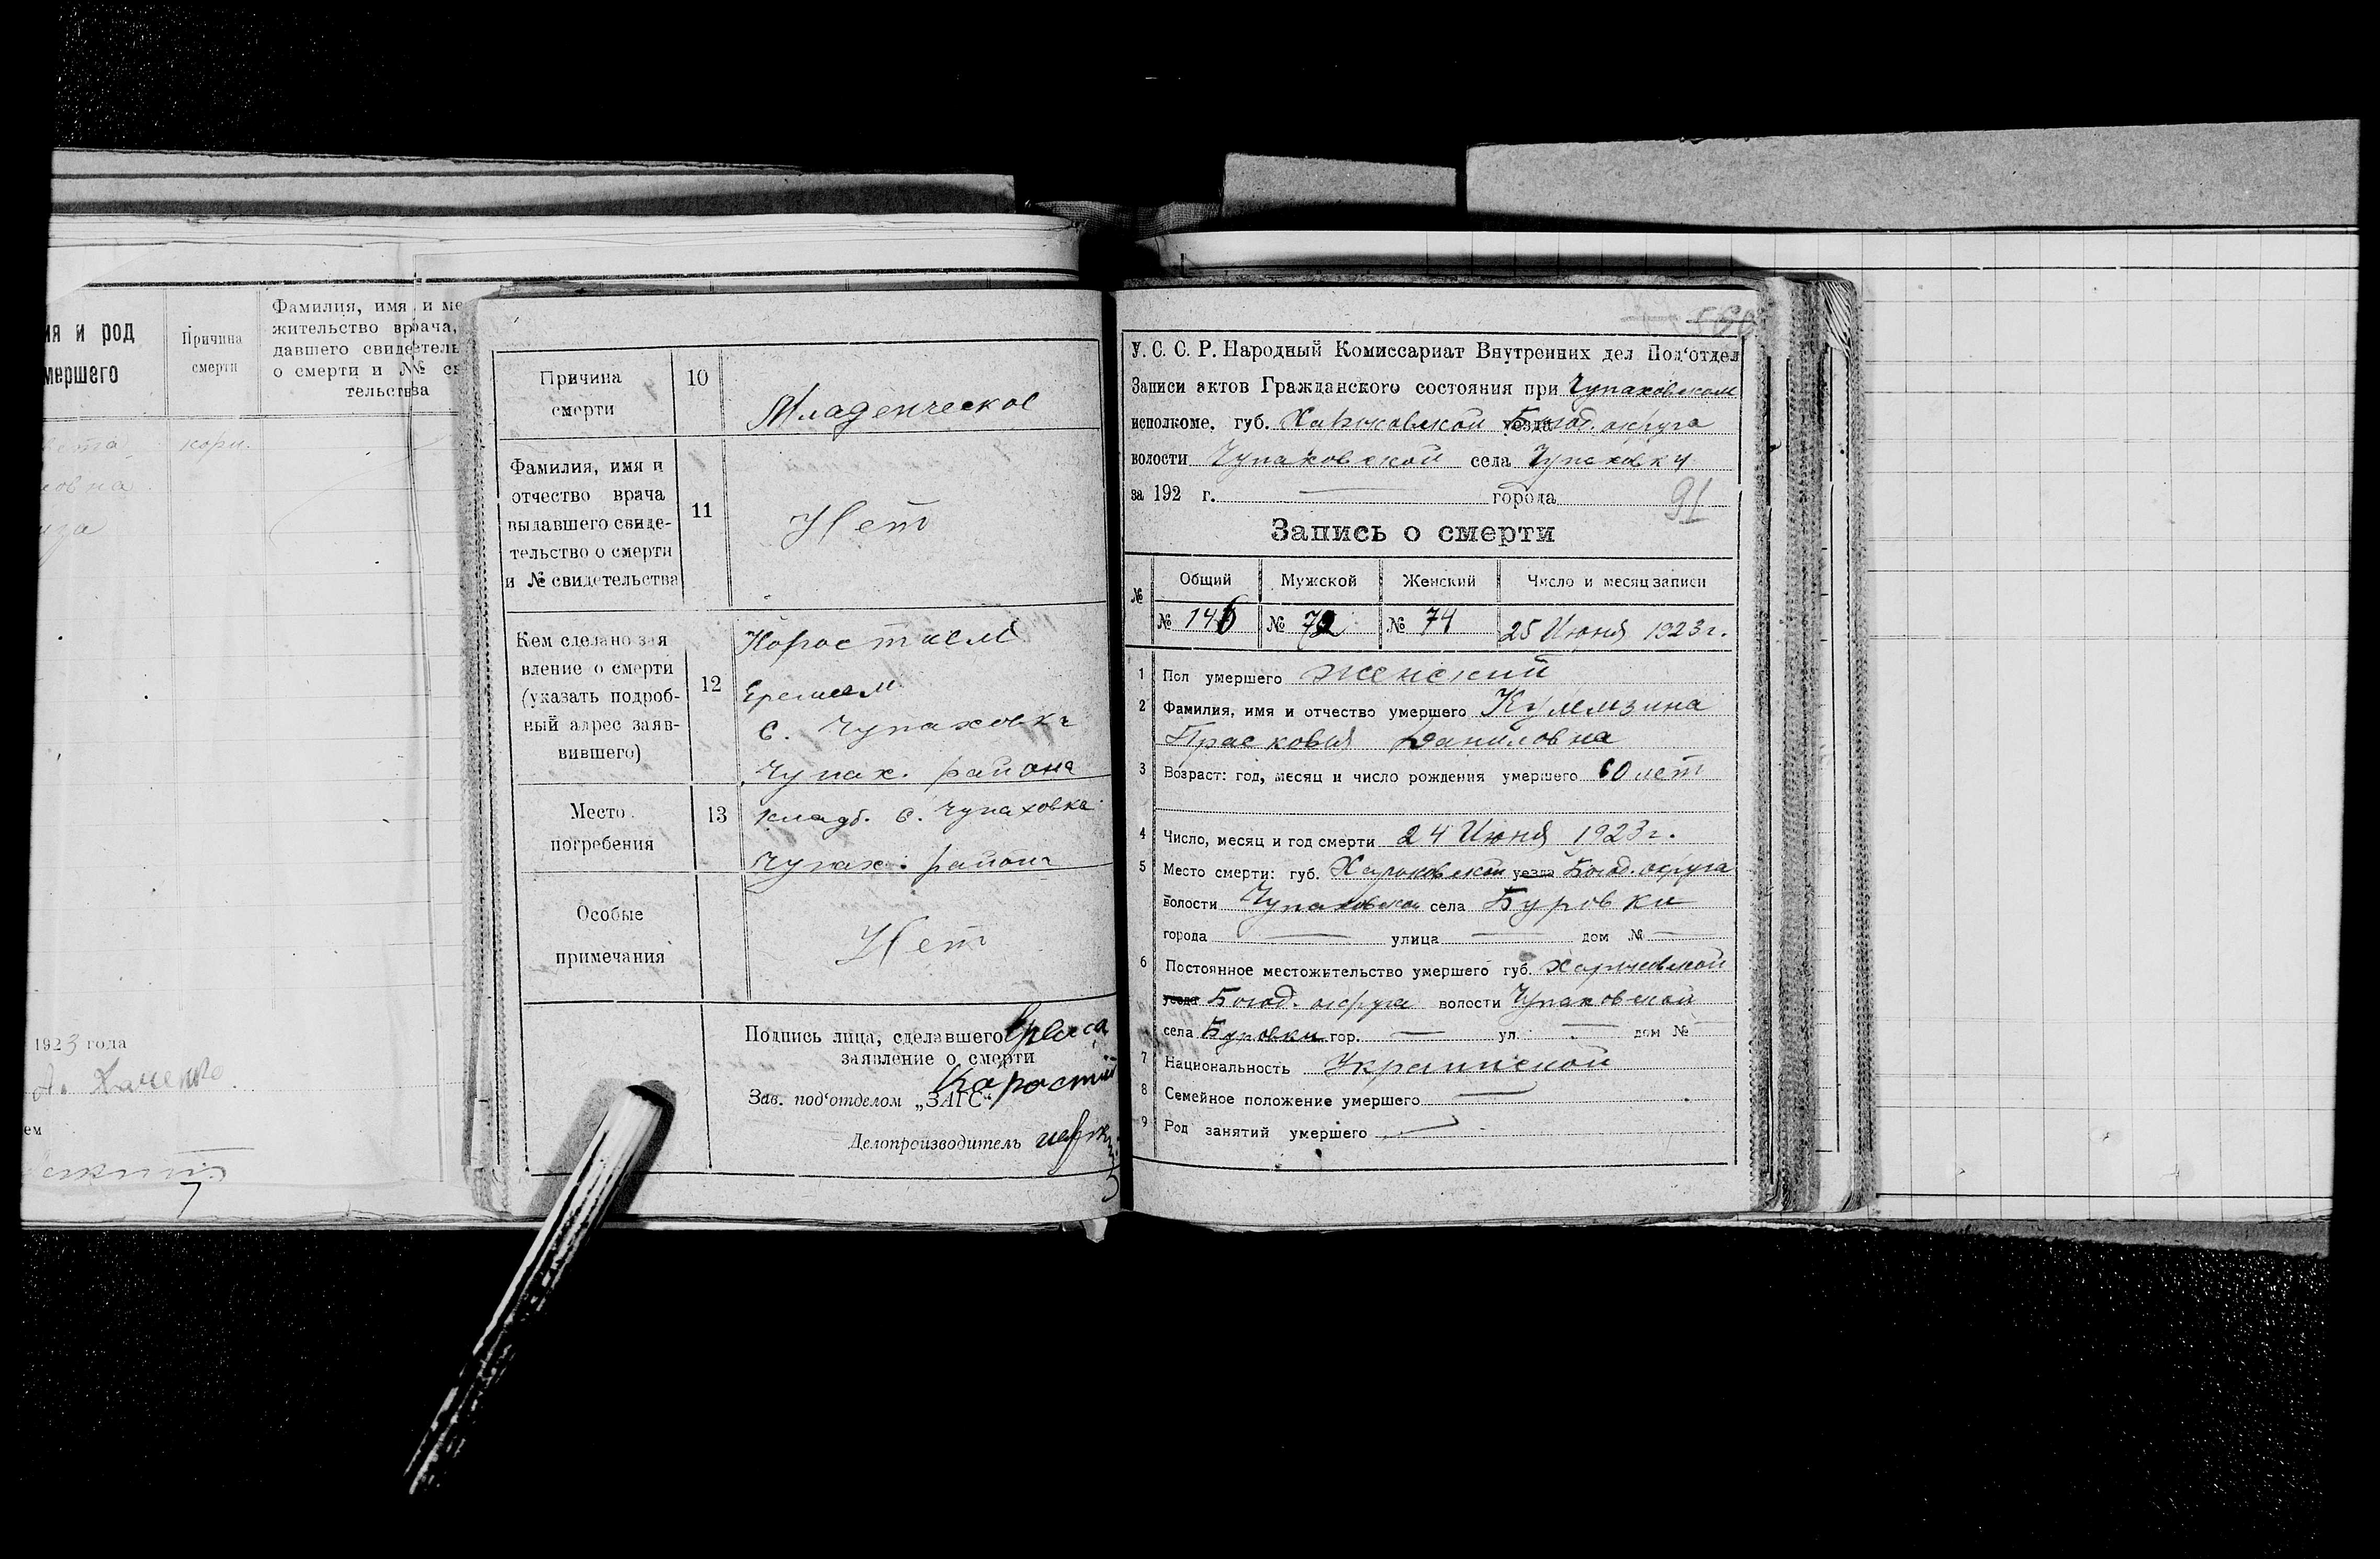 ия и род
мершего
Причина
смерти
Фамилия, имя и ме
жительство врача,
давшего свидетель
о смерти и №№ св
тельства
вета
кори.
овна
1923 года
ем
Причина
смерти
10
Младенческое
Фамилия, имя и
отчество врача
выдавшего свиде-
тельство о смерти
и № свидетельства
11
Нет
Кем сделано зая
вление о смерти
(указать подроб-
ный адрес заяв-
вившего)
12
Коростием
с. Чупаховка
Чупах. района
Место
погребения
13
кладб. с. Чупаховка
Чупах. района
Особые
примечания
Нет
Подпись лица, сделавшего
заявление о смерти
Зав. под'отделом „ЗАГС"
Делопроизводитель
560
У. С. С. Р. Народный Комиссариат Внутренних дел Под'отдел
Записи актов Гражданского состояния при Чупаховском
исполкоме. губ. Харьковской уезда Богод. округа
волости Чупаховской села Чупаховки
за 192 г. — города
91
Запись о смерти
№ Общий Мужской Женский Число и месяц записи
№ 146 № 72 № 74 25 Июня 1923 г.
1 Пол умершего женский
2 Фамилия, имя и отчество умершего Кулемзина
Прасковия Даниловна
3 Возраст: год, месяц и число рождения умершего 60 лет
4 Число, месяц и год смерти 24 Июня 1923 г.
5 Место смерти: губ. Харьковской уезда Богод. округа
волости Чупаховской села Буровки
города — улица — дом № —
6 Постоянное местожительство умершего губ. Харьковской
уезда Богод. округа волости Чупаховской
села Буровки гор. — ул. — дом № —
7 Национальность Украинской
8 Семейное положение умершего —
9 Род занятий умершего —